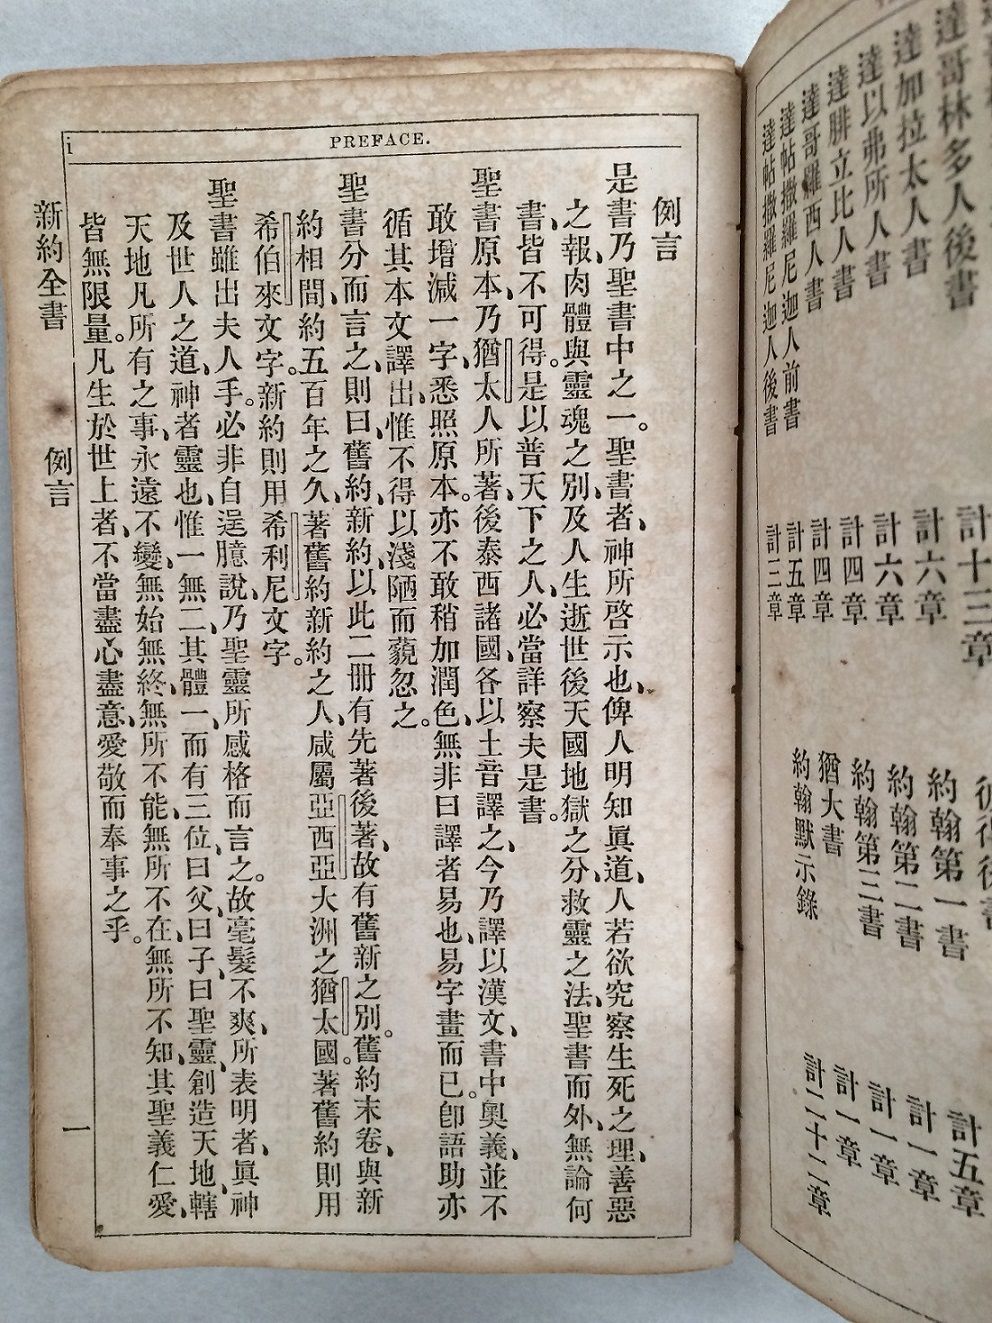 達哥林多人後書 計十三章
達加拉太人書 計六章
達以弗所人書 計六章
達腓立比人書 計四章
達哥羅西人書 計四章
達帖撒羅尼迦人前書 計五章
達帖撒羅尼迦人後書 計三章
約翰第一書 計五章
約翰第二書 計一章
約翰第三書 計一章
猶大書 計一章
約翰默示錄 計二十二章
i
PREFACE.
例言
是書乃聖書中之一。聖書者、神所啓示也、俾人明知眞道、人若欲究察生死之理、善惡
之報、肉體與靈魂之別、及人生逝世後天國地獄之分、救靈之法、聖書而外、無論何
書、皆不可得。是以普天下之人、必當詳察夫是書。
聖書原本、乃猶太人所著、後泰西諸國、各以土音譯之、今乃譯以漢文、書中奧義、並不
敢增減一字、悉照原本。亦不敢稍加潤色、無非曰譯者易也、易字畫而已。卽語助亦
循其本文譯出、惟不得以淺陋而藐忽之。
聖書分而言之、則曰、舊約、新約、以此二冊有先著後著、故有舊新之別。舊約末卷、與新
約相間、約五百年之久、著舊約新約之人、咸屬亞西亞大洲之猶太國。著舊約則用
希伯來文字。新約則用希利尼文字。
聖書雖出夫人手。必非自逞臆說、乃聖靈所感格而言之。故毫髮不爽、所表明者、眞神
及世人之道、神者靈也、惟一無二、其體一、而有三位、曰父、曰子、曰聖靈、創造天地、轄
天地凡所有之事、永遠不變、無始無終、無所不能、無所不在、無所不知、其聖義仁愛、
皆無限量。凡生於世上者、不當盡心盡意、愛敬而奉事之乎。
新約全書 例言 一